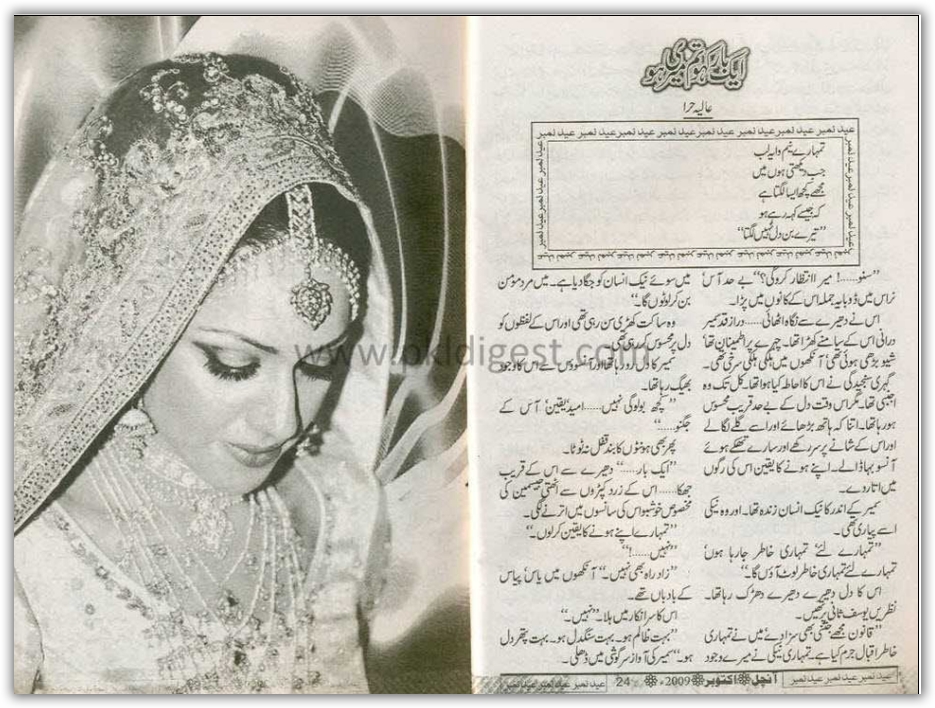 ایک بار کہو تم میری ہو
عالیہ حرا
عید نمبر عید نمبر عید نمبر عید نمبر عید نمبر عید نمبر عید نمبر عید نمبر
تمہارے نیم وا یہ لب
جب دیکھتی ہوں میں
مجھے کچھ ایسا لگتا ہے
کہ جیسے کہہ رہے ہو
”تیرے بن دل نہیں لگتا“
”سنو......! میرا انتظار کروگی؟“ بے حد آس‘
نراس میں ڈوبا یہ جملہ اس کے کانوں میں پڑا۔
اس نے دھیرے سے نگاہ اٹھائی...... دراز قد سمیر
درانی اس کے سامنے کھڑا تھا۔ چہرے پر اطمینان تھا‘
شیو بڑھی ہوئی تھی‘ آنکھوں میں ہلکی ہلکی سرخی تھی۔
گہری سنجیدگی نے اس کا احاطہ کیا ہوا تھا۔ کل تک وہ
اجنبی تھا۔ مگر اس وقت دل کے بے حد قریب محسوس
ہو رہا تھا۔ اتنا کہ ہاتھ بڑھائے اور اسے گلے لگالے
اور اس کے شانے پر سر رکھے اور سارے تھکے ہوئے
آنسو بہا ڈالے۔ اپنے ہونے کا یقین اس کی رگوں
میں اتار دے۔
سمیر کے اندر کا نیک انسان زندہ تھا۔ اور وہ نیکی
اسے پیاری تھی۔
”تمہارے لئے‘ تمہاری خاطر جارہا ہوں‘
تمہارے لئے تمہاری خاطر لوٹ آؤں گا۔“
اس کا دل دھیرے دھیرے دھڑک رہا تھا۔
نظریں یوسف ثانی پر تھیں۔
”قانون مجھے جتنی بھی سزا دے‘ میں نے تمہاری
خاطر اقبال جرم کیا ہے۔ تمہاری نیکی نے میرے وجود
میں سوئے نیک انسان کو جگا دیا ہے۔ میں مرد مومن
بن کر لوٹوں گا۔“
وہ ساکت کھڑی سن رہی تھی اور اس کے لفظوں کو
دل پر محسوس کر رہی تھی۔
سمیر کا دل رو رہا تھا اور آنسوؤں سے اس کا وجود
بھیگ رہا تھا۔
”کچھ بولوگی نہیں...... امید‘ یقین‘ آس کے
جگنو......“
پھر بھی ہونٹوں کا بند قفل نہ ٹوٹا۔
”ایک بار......“ دھیرے سے اس کے قریب
جھکا...... اس کے زرد کپڑوں سے اٹھتی جیسمین کی
مخصوص خوشبو اس کی سانسوں میں اترنے لگی۔
”تمہارے اپنے ہونے کا یقین کرلوں۔“
”نہیں......!“
”زادراہ بھی نہیں۔“ آنکھوں میں یاس‘ پیاس
کے بادباں تھے۔
اس کا سر انکار میں ہلا۔ ”نہیں۔“
”بہت ظالم ہو۔ بہت سنگدل ہو۔ بہت پتھر دل
ہو۔“ سمیر کی آواز سرگوشی میں ڈھلی۔
www.pkldigest.com
عید نمبر عید نمبر عید نمبر عید نمبر آنچل اکتوبر 2009ء 24 عید نمبر عید نمبر عید نمبر عید نمبر